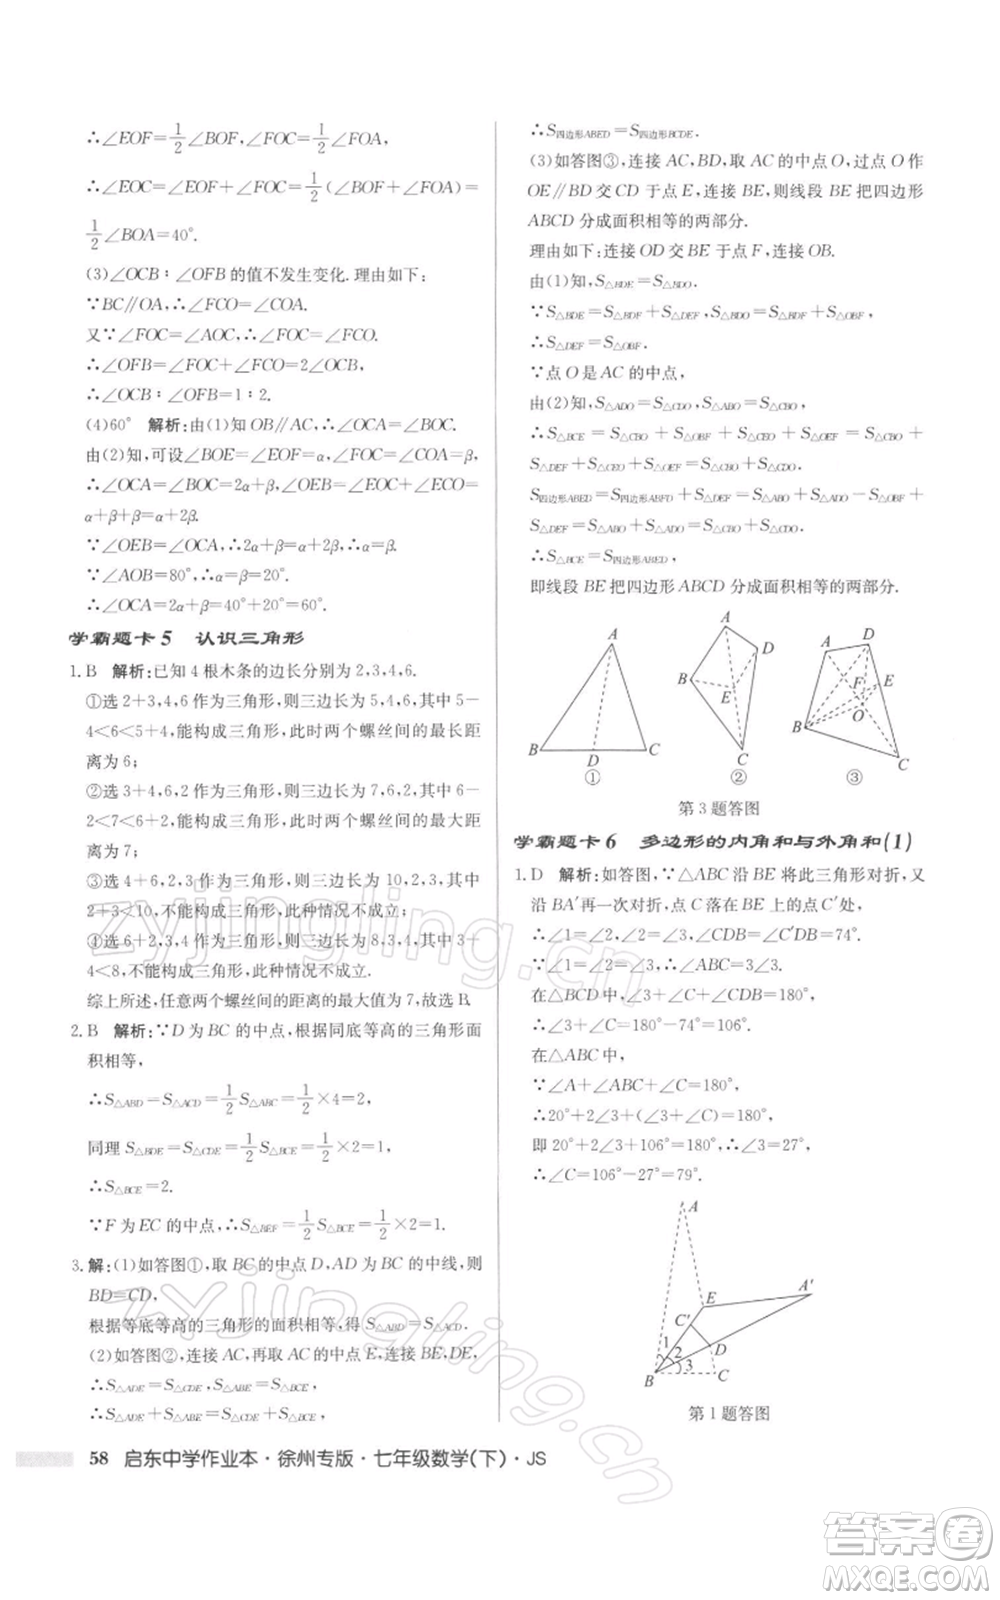 ∴∠EOF=1/2∠BOF,∠FOC=1/2∠FOA,
∴∠EOC=∠EOF+∠FOC=1/2(∠BOF+∠FOA)=
1/2∠BOA=40°.
(3)∠OCB∶∠OFB的值不发生变化.理由如下:
∵BC∥OA,∴∠FCO=∠COA.
又∵∠FOC=∠AOC,∴∠FOC=∠FCO.
∴∠OFB=∠FOC+∠FCO=2∠OCB.
∴∠OCB∶∠OFB=1∶2.
(4)60° 解析:由(1)知OB∥AC,∴∠OCA=∠BOC.
由(2)知,可设∠BOE=∠EOF=α,∠FOC=∠COA=β,
∴∠OCA=∠BOC=2α+β,∠OEB=∠EOC+∠ECO=
α+β+β=α+2β.
∵∠OEB=∠OCA,∴2α+β=α+2β,∴α=β.
∵∠AOB=80°,∴α=β=20°.
∴∠OCA=2α+β=40°+20°=60°.
学霸题卡5 认识三角形
1.B 解析:已知4根木条的边长分别为2,3,4,6.
①选2+3,4,6作为三角形,则三边长为5,4,6,其中5-
4<6<5+4,能构成三角形,此时两个螺丝间的最长距
离为6;
②选3+4,6,2作为三角形,则三边长为7,6,2,其中6-
2<7<6+2,能构成三角形,此时两个螺丝间的最大距
离为7;
③选4+6,2,3作为三角形,则三边长为10,2,3,其中
2+3<10,不能构成三角形,此种情况不成立;
④选6+2,3,4作为三角形,则三边长为8,3,4,其中3+
4<8,不能构成三角形,此种情况不成立.
综上所述,任意两个螺丝间的距离的最大值为7,故选B.
2.B 解析:∵D为BC的中点,根据同底等高的三角形面
积相等,
∴S△ABD=S△ACD=1/2S△ABC=1/2×4=2,
同理S△BDE=S△CDE=1/2S△BCE=1/2×2=1,
∴S△BCE=2.
∵F为EC的中点,∴S△BEF=1/2S△BCE=1/2×2=1.
3.解:(1)如答图①,取BC的中点D,AD为BC的中线,则
BD=CD,
根据等底等高的三角形的面积相等,得S△ABD=S△ACD.
(2)如答图②,连接AC,再取AC的中点E,连接BE,DE,
∴S△ADE=S△CDE,S△ABE=S△BCE,
∴S△ADE+S△ABE=S△CDE+S△BCE,
∴S四边形ABED=S四边形BCDE.
(3)如答图③,连接AC,BD,取AC的中点O,过点O作
OE∥BD交CD于点E,连接BE,则线段BE把四边形
ABCD分成面积相等的两部分.
理由如下:连接OD交BE于点F,连接OB.
由(1)知,S△BDE=S△BDO.
∵S△BDE=S△BDF+S△DEF,S△BDO=S△BDF+S△OBF,
∴S△DEF=S△OBF.
∵点O是AC的中点,
由(2)知,S△ADO=S△CDO,S△ABO=S△CBO,
∴S△BCE=S△CBO+S△OBF+S△CEO+S△OEF=S△CBO+
S△DEF+S△CEO+S△OEF=S△CBO+S△CDO.
S四边形ABED=S四边形ABFD+S△DEF=S△ABO+S△ADO-S△OBF+
S△DEF=S△ABO+S△ADO=S△CBO+S△CDO,
∴S△BCE=S四边形ABED,
即线段BE把四边形ABCD分成面积相等的两部分.
A
B
D
C
①
A
D
B
E
C
②
A
D
F
E
O
B
C
③
第3题答图
学霸题卡6 多边形的内角和与外角和(1)
1.D 解析:如答图,∵△ABC沿BE将此三角形对折,又
沿BA′再一次对折,点C落在BE上的点C′处,
∴∠1=∠2,∠2=∠3,∠CDB=∠C′DB=74°.
∴∠1=∠2=∠3,∴∠ABC=3∠3.
在△BCD中,∵∠3+∠C+∠CDB=180°,
∴∠3+∠C=180°-74°=106°.
在△ABC中,
∵∠A+∠ABC+∠C=180°,
∴20°+2∠3+(∠3+∠C)=180°,
即20°+2∠3+106°=180°,∴∠3=27°,
∴∠C=106°-27°=79°.
A
A′
E
C′
D
1
2
3
B
C
第1题答图
58 启东中学作业本·徐州专版·七年级数学(下)·JS
zyjingling.cn
zyjingling.cn
答案卷
MXQE.COM